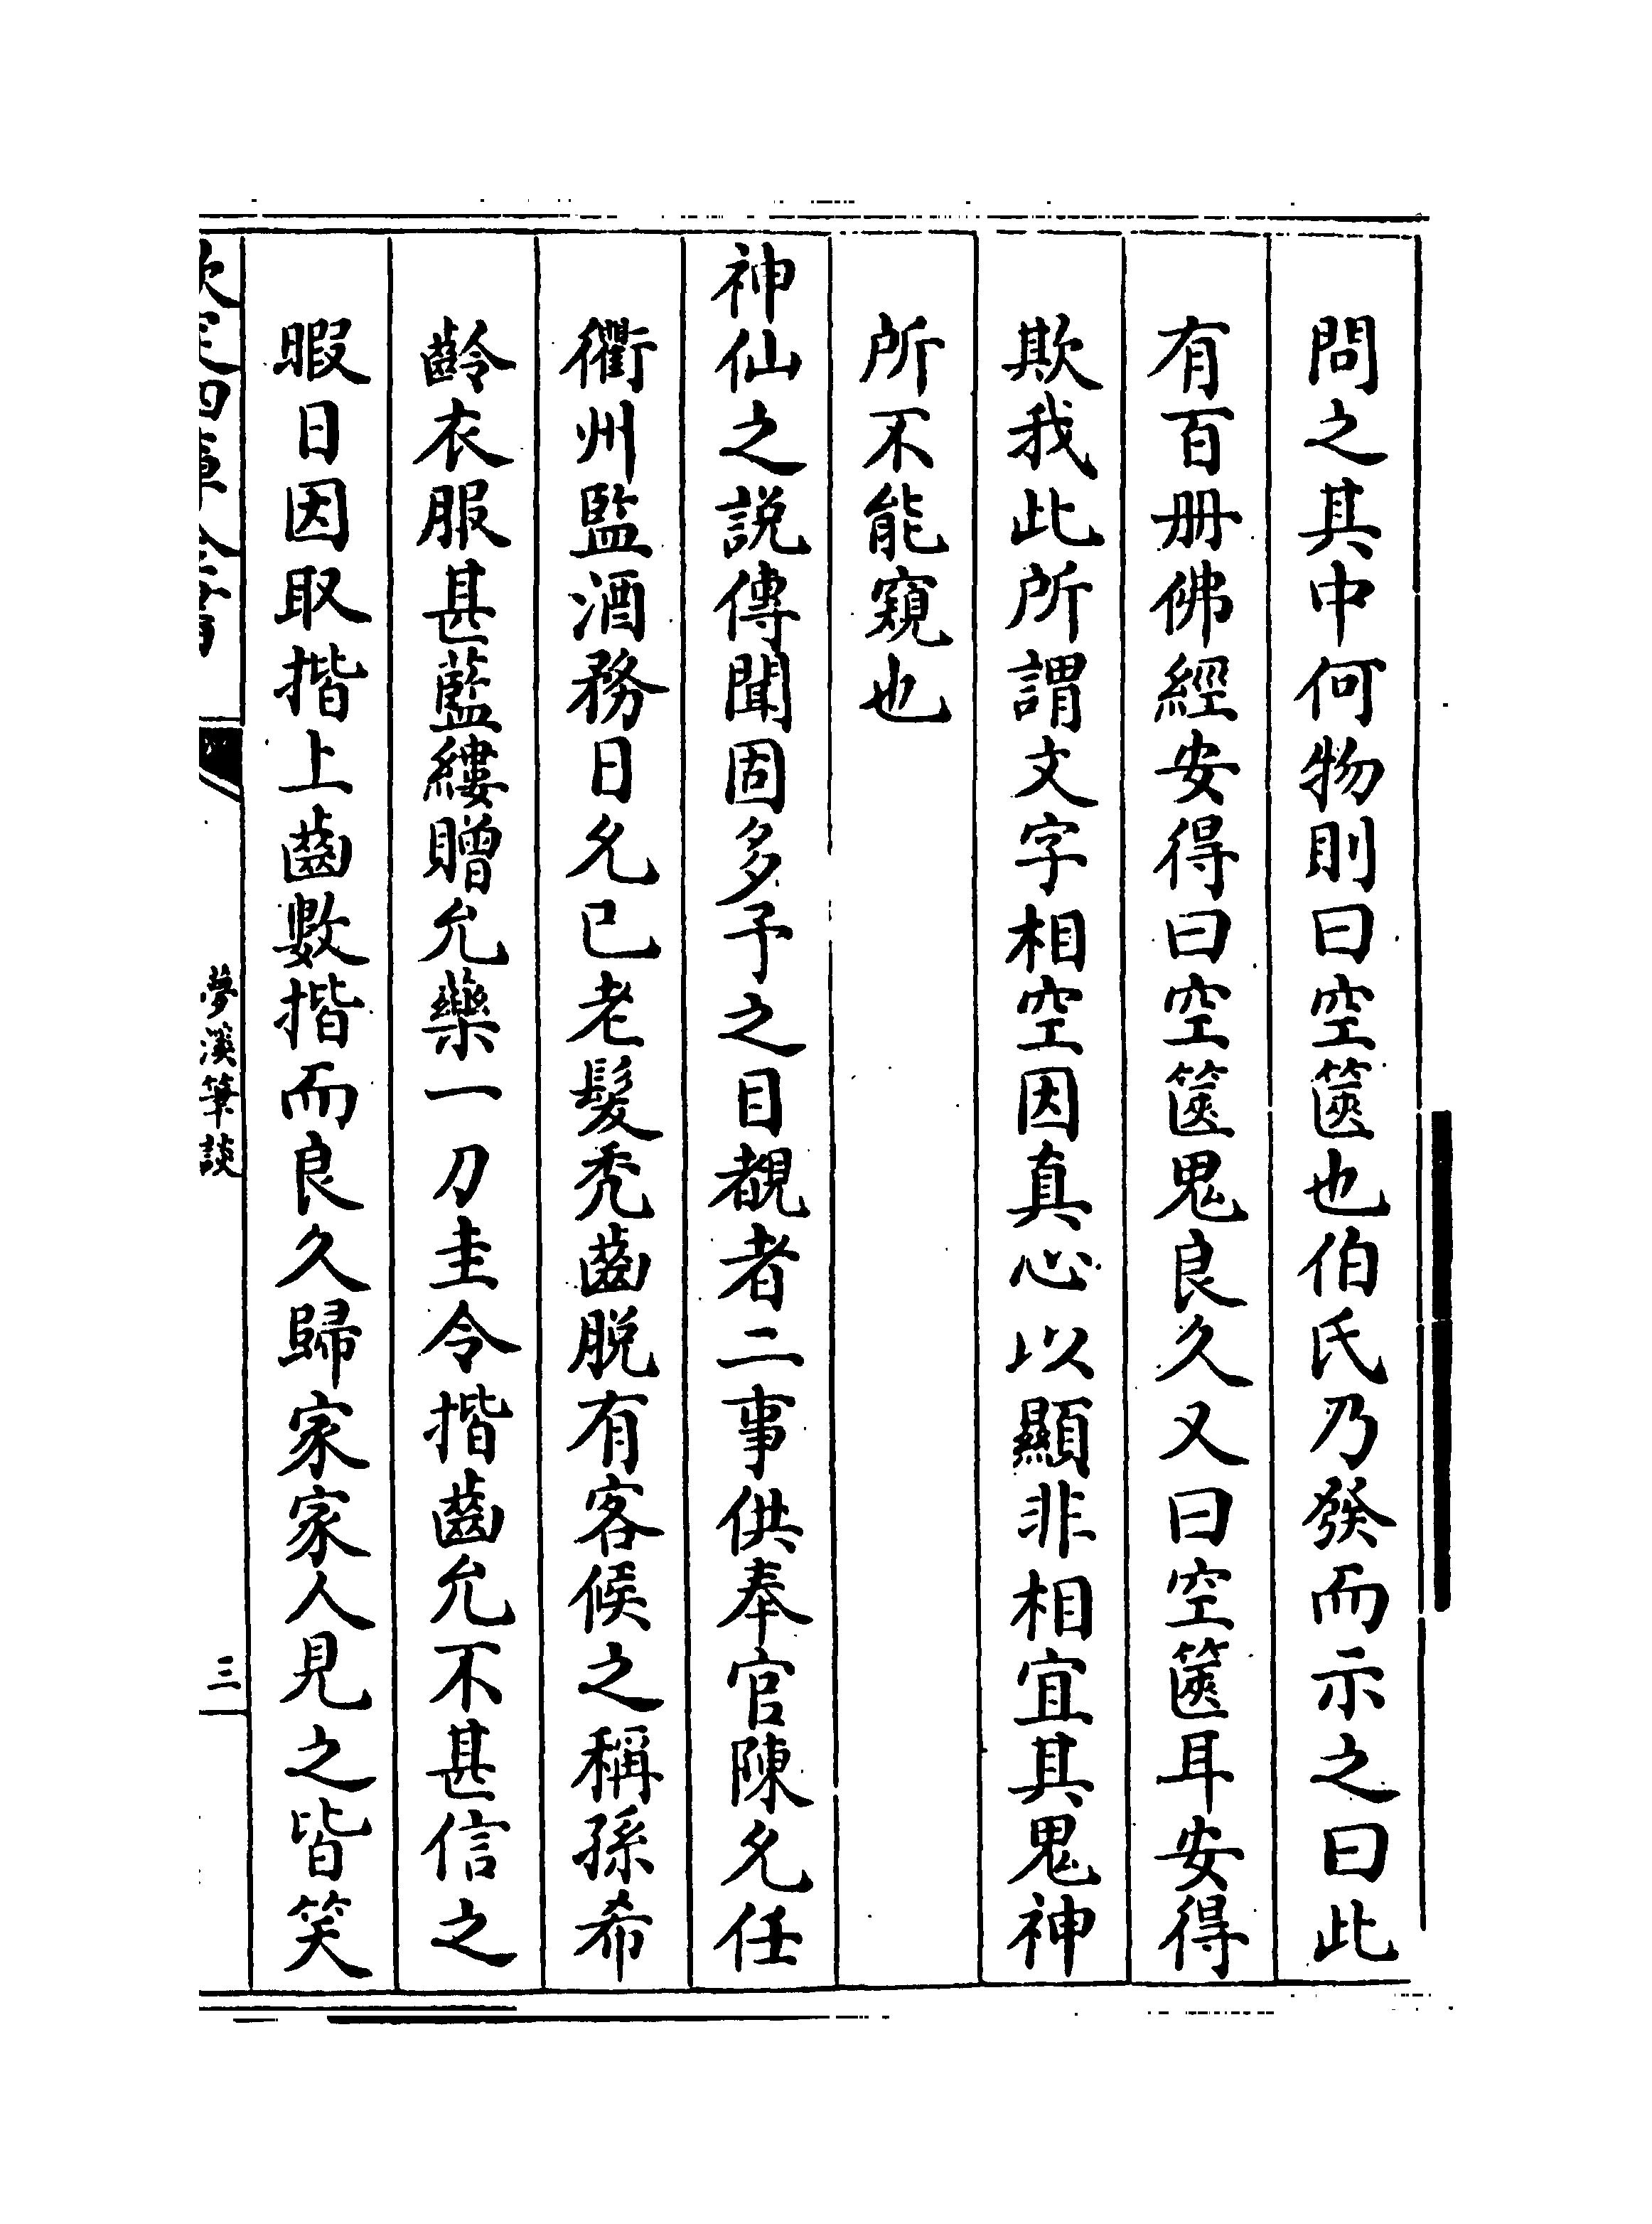 問之其中何物則曰空篋也伯氏乃發而示之曰此
有百册佛經安得曰空篋鬼良久又曰空篋耳安得
欺我此所謂文字相空因真心以顯非相宜其鬼神
所不能窺也
神仙之説傳聞固多予之目覩者二事供奉官陳允任
衢州監酒務日允已老髮秃齒脱有客候之稱孫希
齡衣服甚藍縷贈允藥一刀圭令揩齒允不甚信之
暇日因取揩上齒數揩而良久歸家家人見之皆笑
欽定四庫全書
夢溪筆談
三